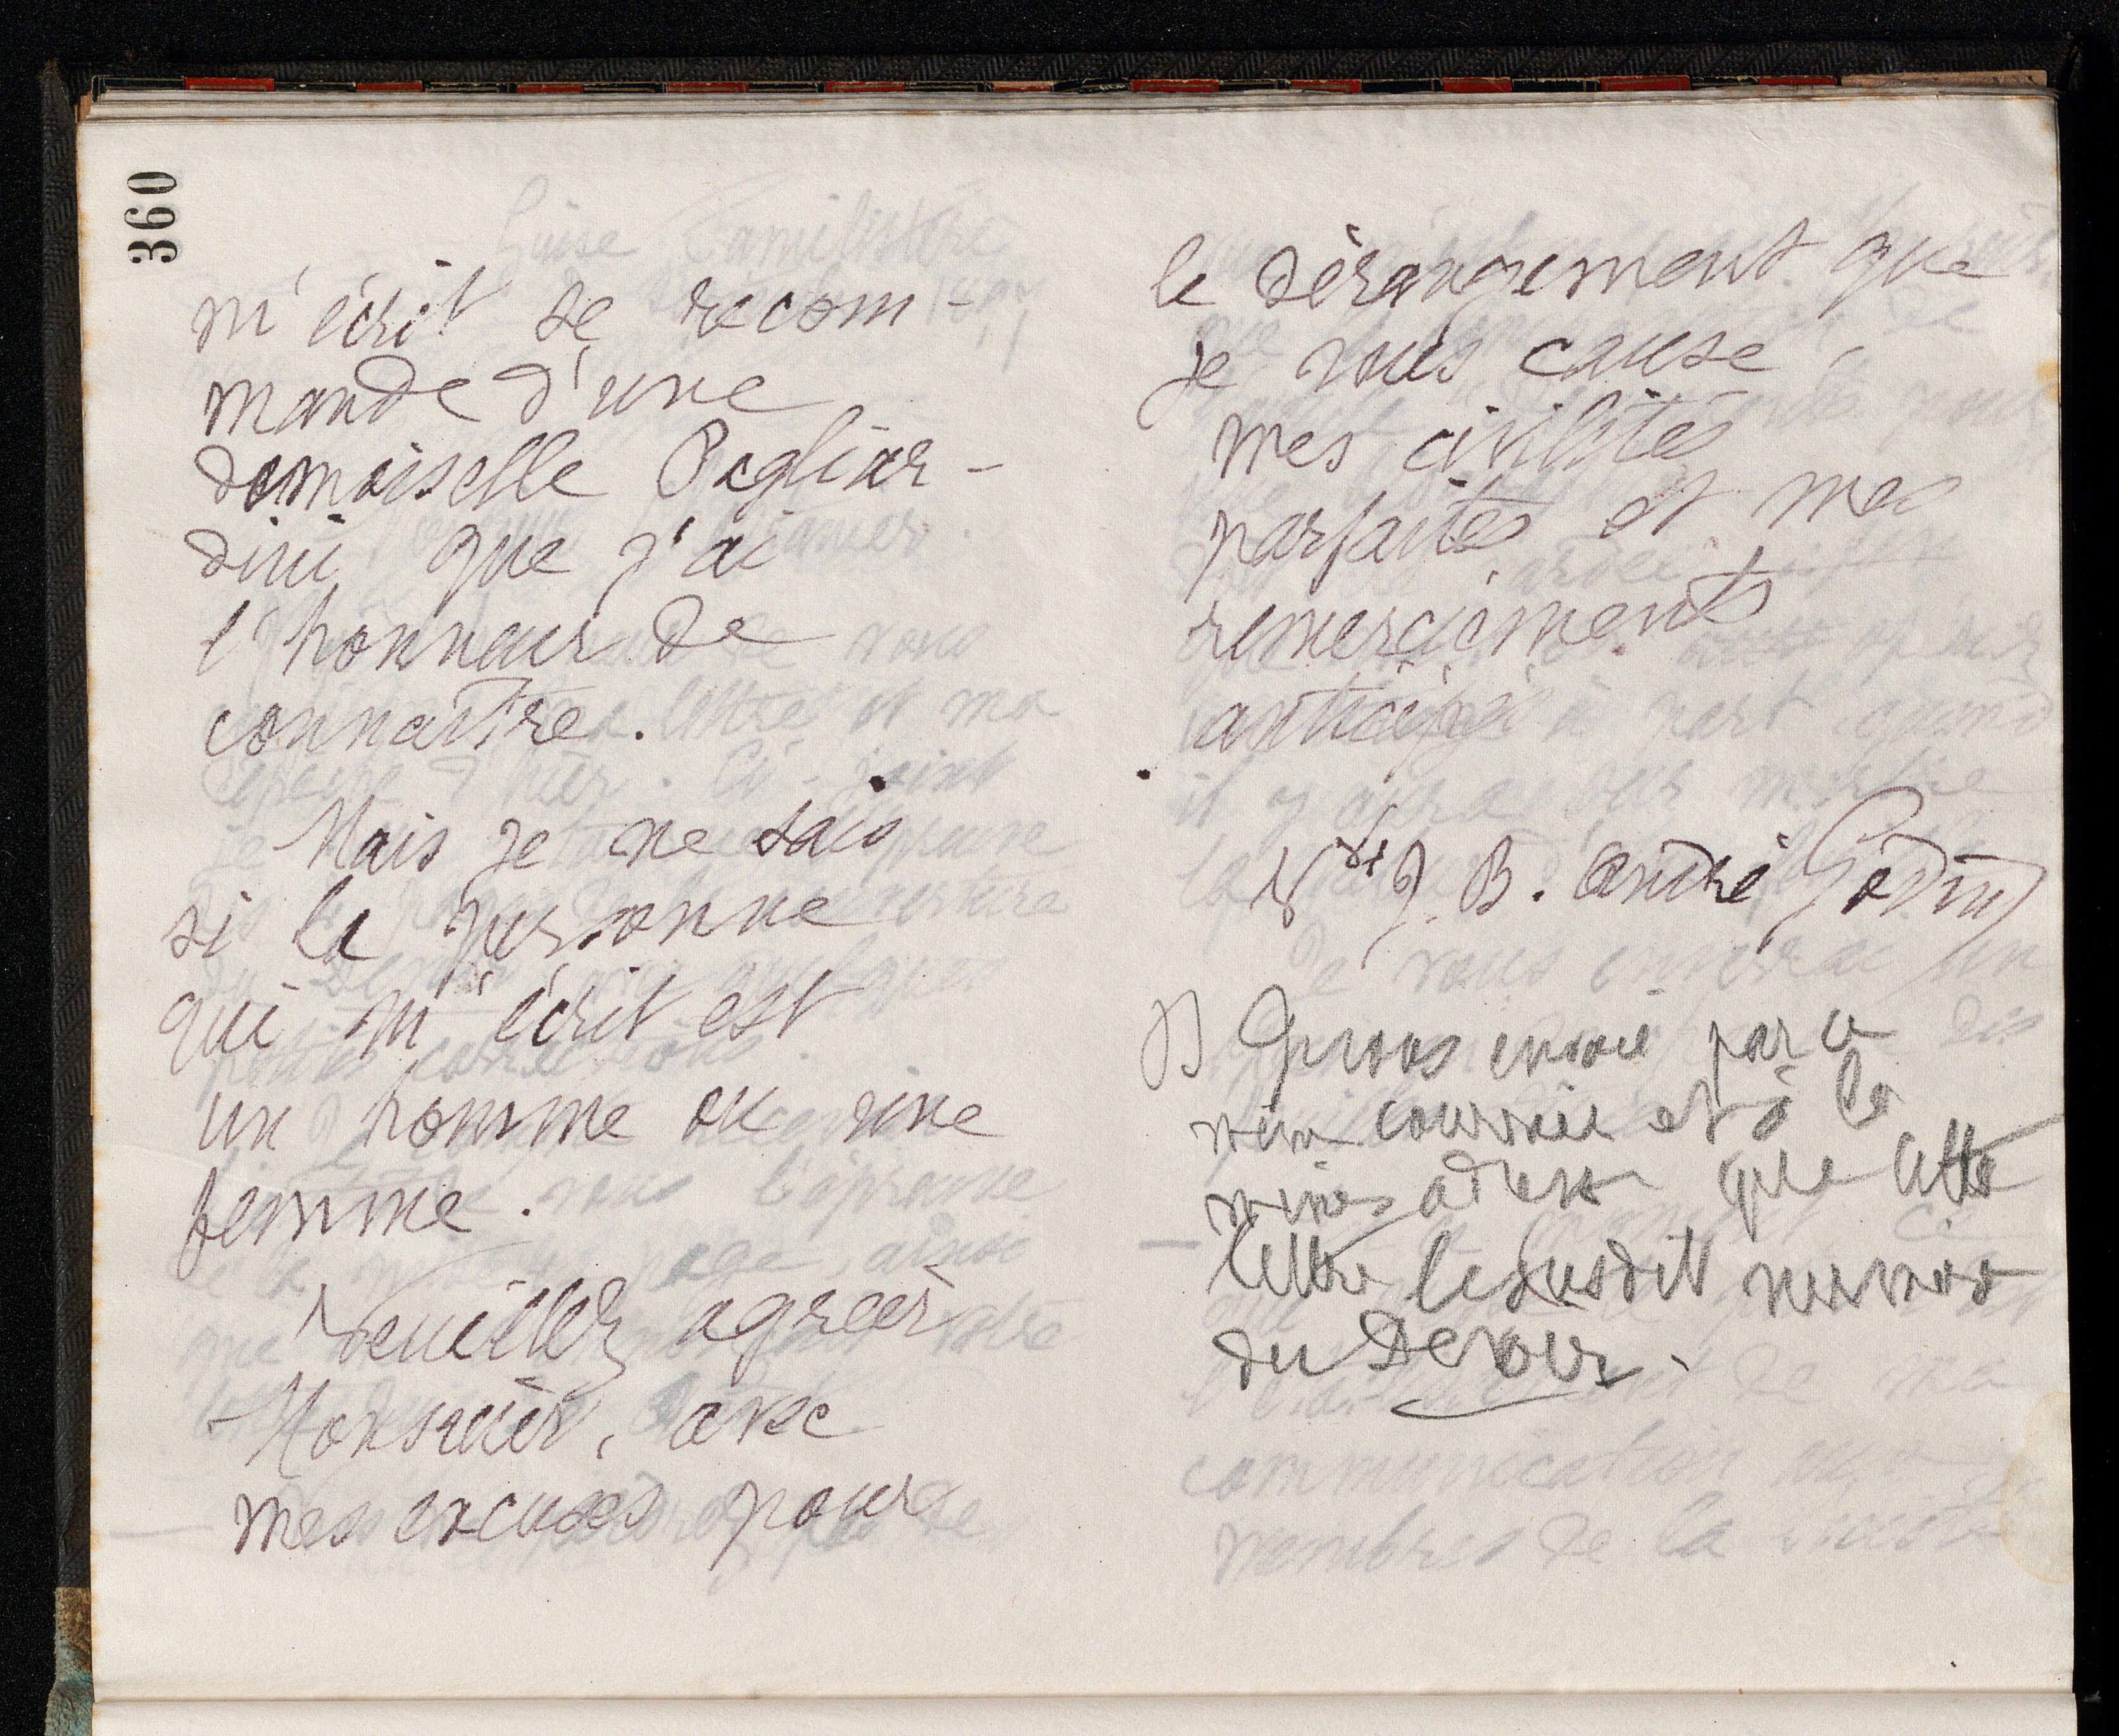 360
m'écrit se recom-
mande d'une
demoiselle Pagliar-
dini que j'ai
l'honneur de
connaître.
Mais je ne sais
si la personne
qui m'écrit est
un homme ou une
femme.
Veuillez agréer
Monsieur, avec
mes excuses pour
le dérangement que
je vous cause,
mes civilités
parfaites et mes
remerciements
anticipés
Vve J. B. André Godin
vous envoie par ce
même courrier et à la
même adresse que cette
lettre le susdit numéro
du Devoir.